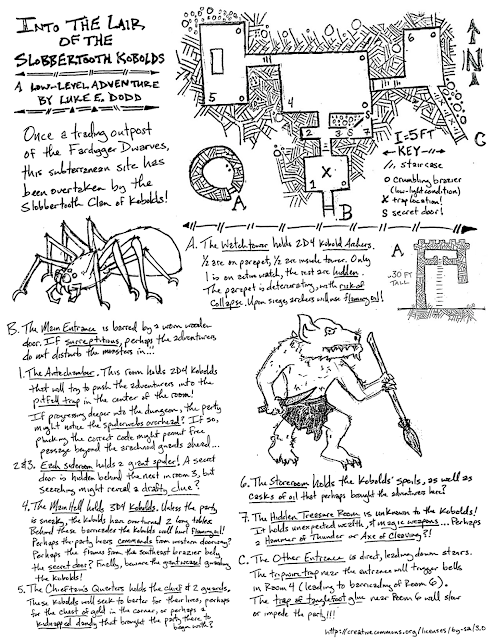 Into The Lair
of the
Slobbertooth Kobolds
A low-level adventure
by Luke E. Dodd
Once a trading outpost
of the Fardugger Dwarves,
this subterranean site has
been overtaken by the
Slobbertooth Clan of Kobolds!
5
4
6
2
3
S
7
S
1
X
A
B
C
N
I=5FT
KEY
staircase
crumbling brazier
(low-light condition)
X trap location!
S secret door!
A. The Watchtower holds 2D4 Kobold Archers.
½ are on parapet, ½ are inside tower. Only
1 is on active watch, the rest are hidden.
The parapet is deteriorating, with risk of
collapse. Upon siege, archers will use flaming oil!
A
~30 FT
TALL
B. The Main Entrance is barred by a worn wooden
door. If surreptitious, perhaps the adventurers
do not disturb the monsters in...
1. The Antechamber. This room holds 2D4 Kobolds
that will try to push the adventurers into the
pitfall trap in the center of the room!
If progressing deeper into the dungeon, the party
might notice the spiderwebs overhead? If so,
plucking the correct code might permit free
passage beyond the arachnid guards ahead...
2&3. Each sideroom holds a giant spider! A secret
door is hidden behind the nest in room 3, but
searching might reveal a drafty clue?
4. The Main Hall holds 3D4 Kobolds. Unless the party
is sneaky, the kobolds have overturned 2 long tables.
Behind these barricades the Kobolds will hurl flaming oil!
Perhaps the party hears commands from western doorway?
Perhaps the flames from the southeast brazier belie
the secret door? Finally, beware the giant weasel guarding
the kobolds!
5. The Chieftain's Quarters holds the chief & 2 guards.
These Kobolds will seek to barter for their lives, perhaps
for the chest of gold in the corner, or perhaps a
kidnapped dandy that brought the party there to
begin with?
6. The Storeroom holds the Kobolds' spoils, as well as
casks of oil that perhaps bought the adventurers here?
7. The Hidden Treasure Room is unknown to the Kobolds!
It holds unexpected wealth, & magic weapons... Perhaps
a Hammer of Thunder or Axe of Cleaving?!
C. The Other Entrance is direct, leading down stairs.
The tripwire trap near the entrance will trigger bells
in Room 4 (leading to barricading of Room 6).
The trap of tanglefoot glue near Room 6 will slow
or impede the party!!!
http://creativecommons.org/licenses/by-sa/3.0